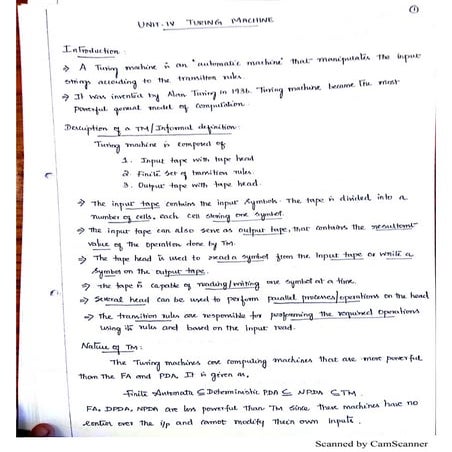 ①
UNIT-IV TURING MACHINE
Introduction:
→ A Turing machine is an "automatic machine" that manipulates the input
strings according to the transition rules.
→ It was invented by Alan Turing in 1936. Turing machine became the most
powerful general model of computation.
Description of a TM/Informal definition:
Turing machine is composed of
1. Input tape with tape head
2. Finite set of transition rules.
3. Output tape with tape head.
→ The input tape contains the input symbols. The tape is divided into a
number of cells, each cell storing one symbol.
→ The input tape can also serve as output tape, that contains the resultant
value of the operation done by TM.
→ The tape head is used to read a symbol from the input tape or write a
symbol on the output tape.
→ The tape is capable of reading/writing one symbol at a time.
→ Several head can be used to perform parallel processes/operations on the head
→ The transition rules are responsible for performing the required operations
using its rules and based on the input read.
Nature of TM:
The Turing machines are computing machines that are more powerful
than the FA and PDA. It is given as,
Finite Automata ⊆ Deterministic PDA ⊆ NPDA ⊆ TM.
FA, DPDA, NPDA are less powerful than TM since these machines have no
control over the i/p and cannot modify their own inputs.
Scanned by CamScanner